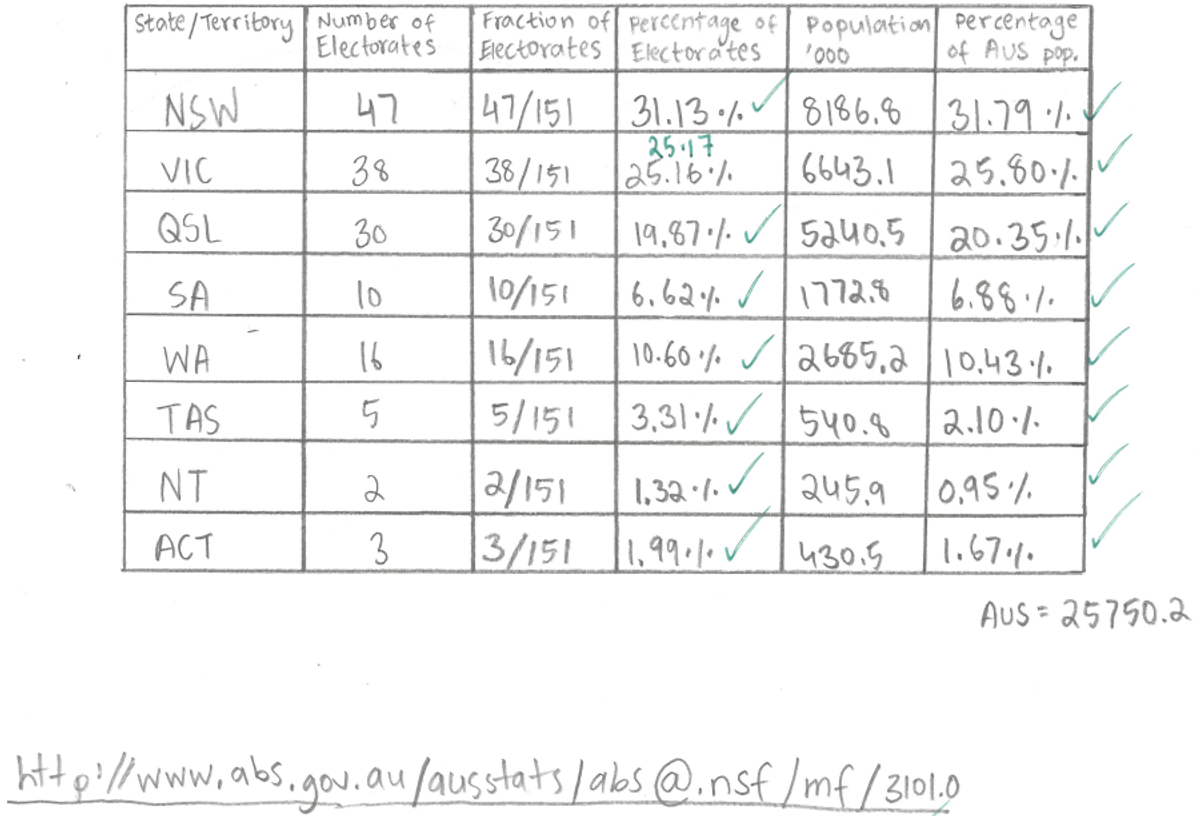 State/Territory Number of Electorates Fraction of Electorates Percentage of Electorates Population '000 Percentage of AUS pop.
NSW 47 47/151 31.13% 8186.8 31.79%
25.17
VIC 38 38/151 25.16% 6643.1 25.80%
QSL 30 30/151 19.87% 5240.5 20.35%
SA 10 10/151 6.62% 1772.8 6.88%
WA 16 16/151 10.60% 2685.2 10.43%
TAS 5 5/151 3.31% 540.8 2.10%
NT 2 2/151 1.32% 245.9 0.95%
ACT 3 3/151 1.99% 430.5 1.67%
AUS = 25750.2
http://www.abs.gov.au/ausstats/abs@.nsf/mf/3101.0